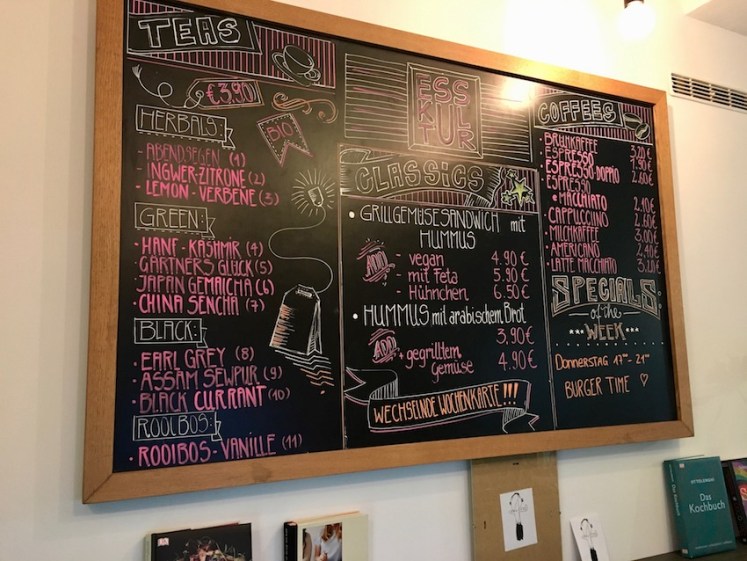 TEAS
€3,90
BIO
HERBALS:
- ABENDSEGEN (1)
- INGWER-ZITRONE (2)
- LEMON-VERBENE (3)
GREEN:
· HANF-KASHMIR (4)
· GÄRTNERS GLÜCK (5)
· JAPAN GEMAICHA (6)
· CHINA SENCHA (7)
BLACK:
· EARL GREY (8)
· ASSAM SEWPUR (9)
· BLACK CURRANT (10)
ROOIBOS:
· ROOIBOS-VANILLE (11)
ESS
KULTUR
CLASSICS
• GRILLGEMÜSESANDWICH mit
HUMMUS
ADD
- vegan 4.90 €
- mit Feta 5.90 €
- Hühnchen 6.50 €
• HUMMUS mit arabischem Brot
3,90 €
ADD
+ gegrilltem 4.90 €
Gemüse
WECHSELNDE WOCHENKARTE!!!
COFFEES
· BRÜHKAFFEE 3.20 €
· ESPRESSO 1.90 €
· ESPRESSO-DOPPIO 2.60 €
· ESPRESSO
MACCHIATO 2.10 €
· CAPPUCCINO 2.60 €
· MILCHKAFFEE 3.00 €
· AMERICANO 2.40 €
· LATTE MACCHIATO 3.20 €
SPECIALS
of the
WEEK
Donnerstag 17⁰⁰ - 21⁰⁰
BURGER TIME ♡
OTTOLENGHI
Das
Kochbuch